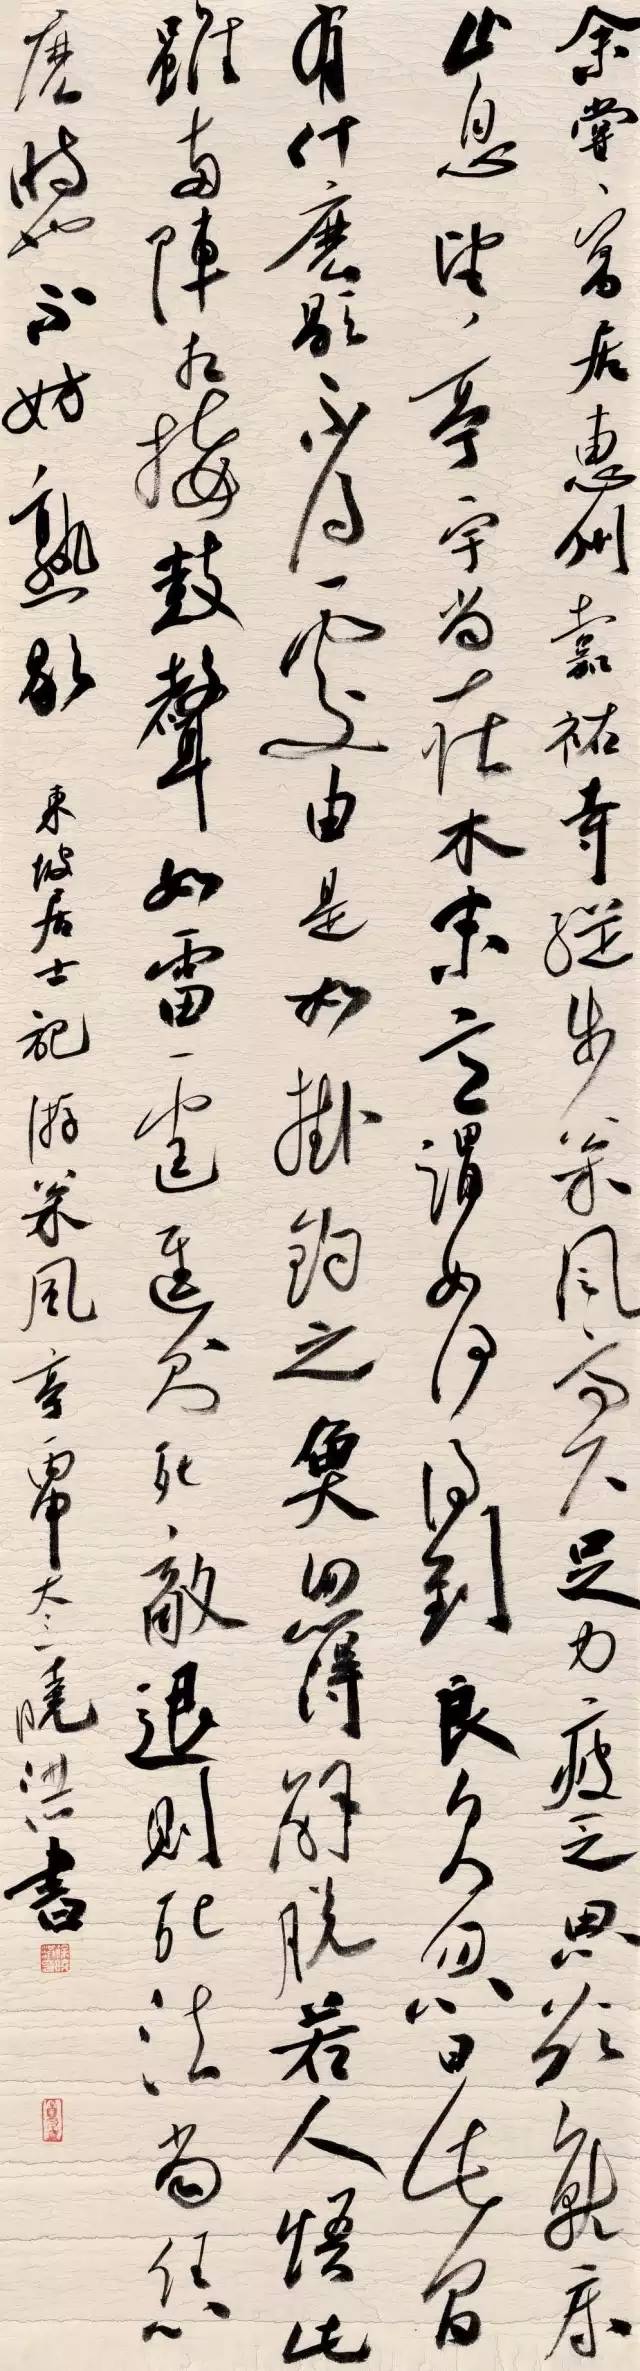 余嘗寓居惠州嘉祐寺縱步松風亭下足力疲乏思欲就床
止息望亭宇尚在木末意謂如何得到良久忽曰此間
有什麼歇不得處由是如掛鉤之魚忽得解脫若人悟此
雖兩陣相接鼓聲如雷霆進則死敵退則死法當恁
麼時也不妨熟歇 東坡居士記游松風亭 丙申 曉浩書